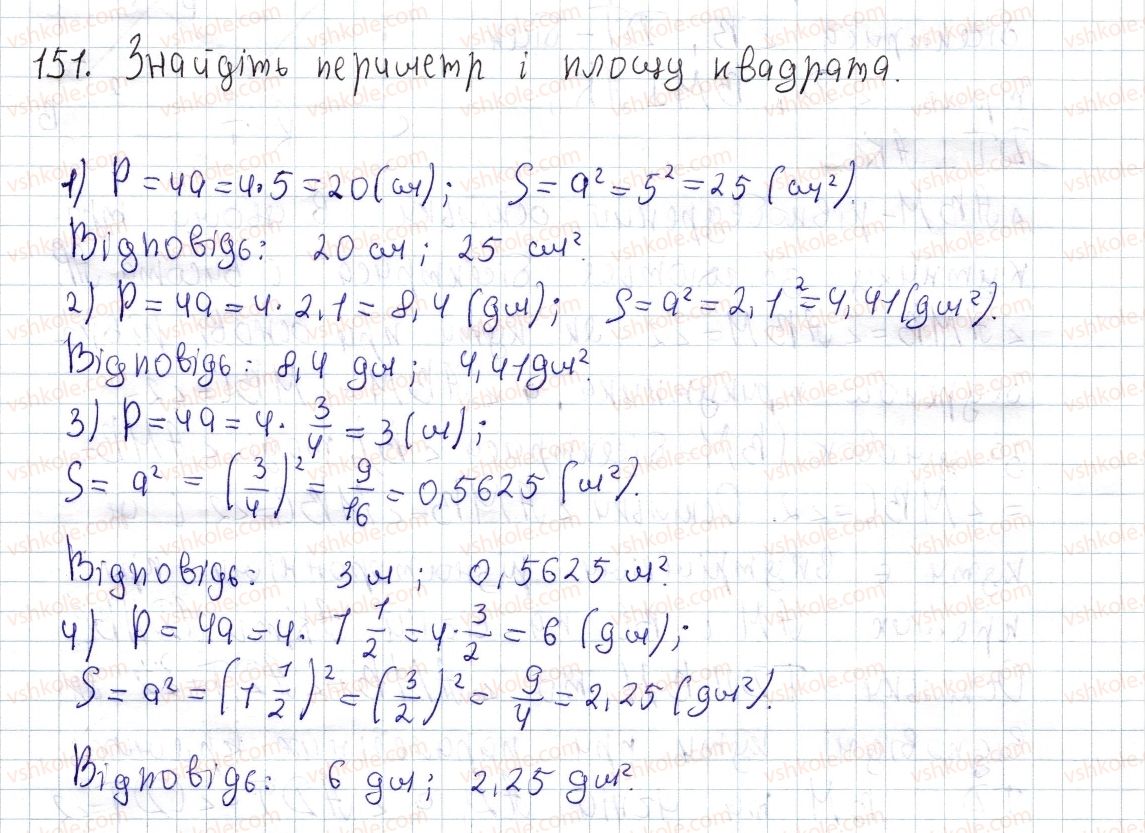 151. Знайдіть периметр і площу квадрата.
1) P = 4a = 4·5 = 20 (см); S = a² = 5² = 25 (см²).
Відповідь: 20 см; 25 см².
2) P = 4a = 4·2,1 = 8,4 (дм); S = a² = 2,1² = 4,41 (дм²).
Відповідь: 8,4 дм; 4,41 дм².
3) P = 4a = 4·3/4 = 3 (м);
S = a² = (3/4)² = 9/16 = 0,5625 (м²).
Відповідь: 3 м; 0,5625 м².
4) P = 4a = 4·1 1/2 = 4·3/2 = 6 (дм);
S = a² = (1 1/2)² = (3/2)² = 9/4 = 2,25 (дм²).
Відповідь: 6 дм; 2,25 дм².
vshkole.com